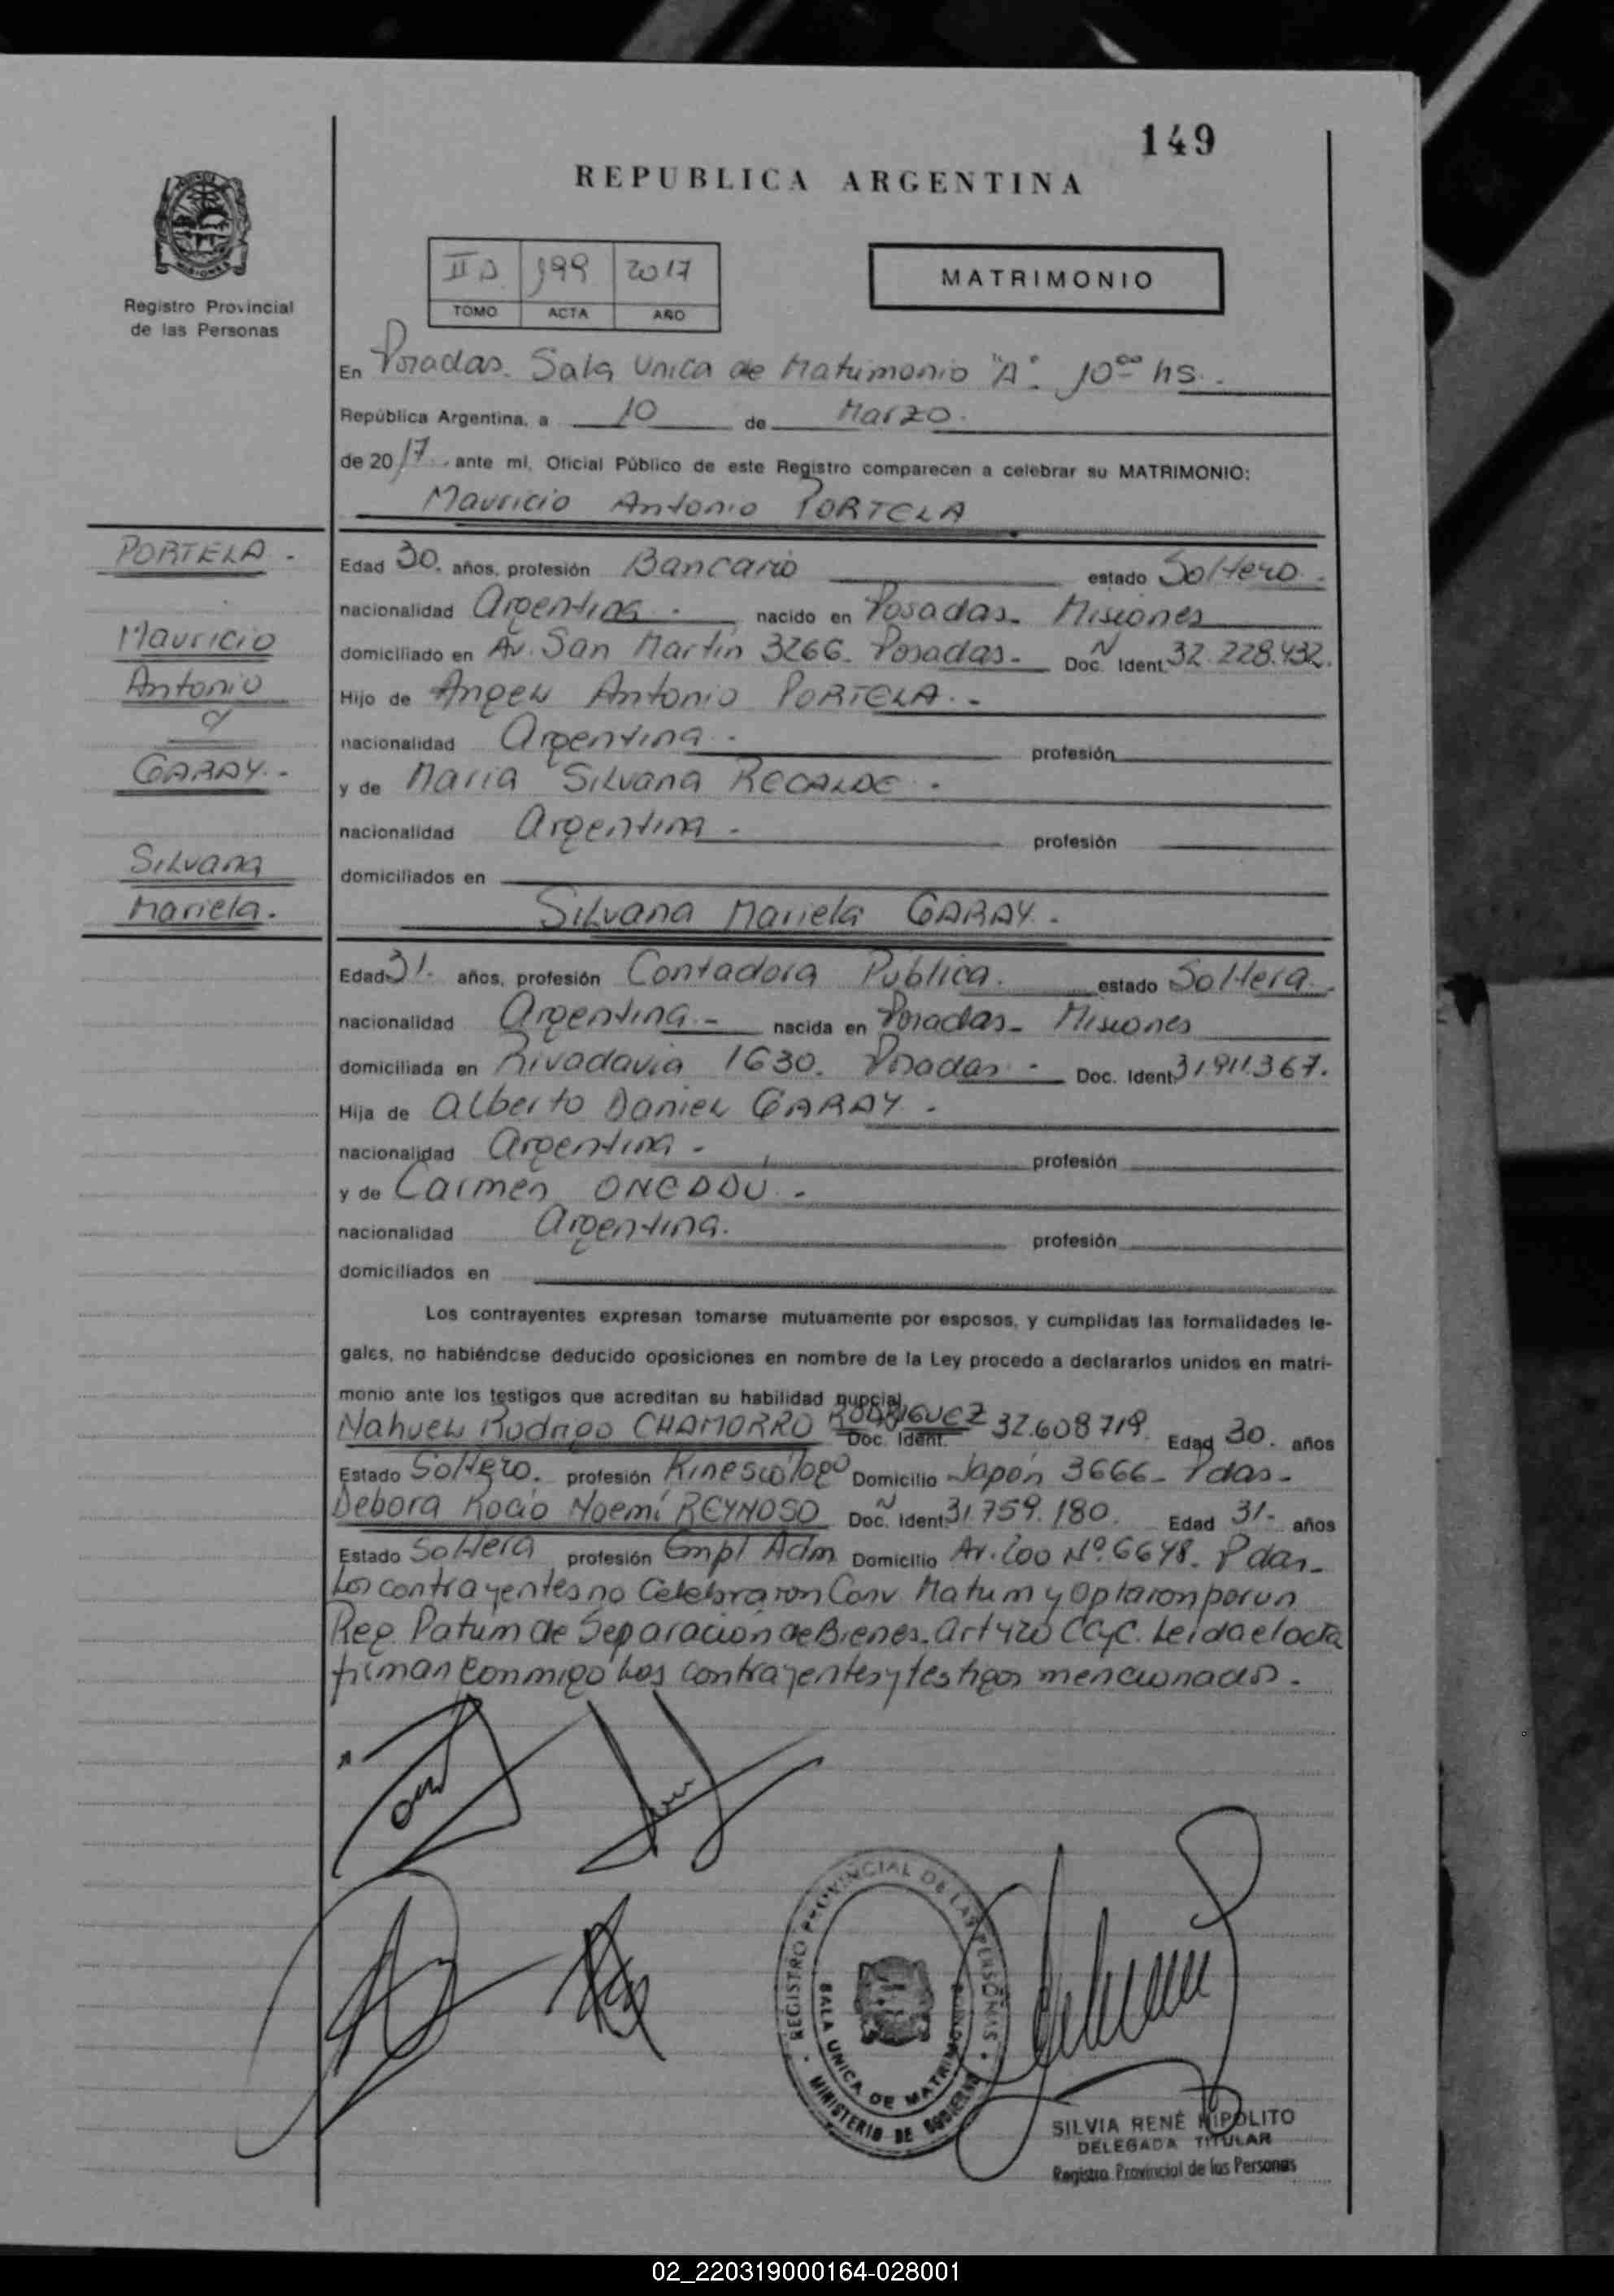 149
REPUBLICA ARGENTINA
Registro Provincial
de las Personas
II D. 199 2017
TOMO ACTA AÑO
MATRIMONIO
En Posadas. Sala Unica de Matrimonio "A". 10°° hs.
República Argentina, a 10 de Marzo.
de 2017 ante mí, Oficial Público de este Registro comparecen a celebrar su MATRIMONIO:
Mauricio Antonio PORTELA
PORTELA.
Mauricio
Antonio
y
GARAY.
Silvana
Mariela.
Edad 30. años, profesión Bancario estado Soltero.
nacionalidad Argentina. nacido en Posadas. Misiones
domiciliado en Av. San Martín 3266. Posadas. Doc. N Ident. 32.228.432.
Hijo de Angel Antonio PORTELA.
nacionalidad Argentina. profesión
y de Maria Silvana RECALDE.
nacionalidad Argentina. profesión
domiciliados en
Silvana Mariela GARAY.
Edad 31. años, profesión Contadora Publica. estado Soltera.
nacionalidad Argentina. nacida en Posadas. Misiones
domiciliada en Rivadavia 1630. Posadas. Doc. Ident. 31.911.367.
Hija de Alberto Daniel GARAY.
nacionalidad Argentina. profesión
y de Carmen ONEDDU.
nacionalidad Argentina. profesión
domiciliados en
Los contrayentes expresan tomarse mutuamente por esposos, y cumplidas las formalidades le-
gales, no habiéndose deducido oposiciones en nombre de la Ley procedo a declararlos unidos en matri-
monio ante los testigos que acreditan su habilidad nupcial
Nahuel Rodrigo CHAMORRO RODRIGUEZ Doc. Ident. 32.608719. Edad 30. años
Estado Soltero. profesión Kinesiólogo Domicilio Japón 3666. Pdas.
Debora Rocío Noemí REYNOSO Doc. N Ident. 31.759.180. Edad 31. años
Estado Soltera profesión Empl Adm Domicilio Av. 200 Nº 6648. Pdas.
Los contrayentes no Celebraron Conv. Matrim y Optaron por un
Reg. Patrim de Separación de Bienes. Art 420 CCyC. Leida el acta
firman conmigo Los contrayentes y testigos mencionados.
REGISTRO PROVINCIAL DE LAS PERSONAS
SALA UNICA DE MATRIMONIO
MINISTERIO DE GOBIERNO
SILVIA RENÉ HIPOLITO
DELEGADA TITULAR
Registro Provincial de las Personas
02_220319000164-028001